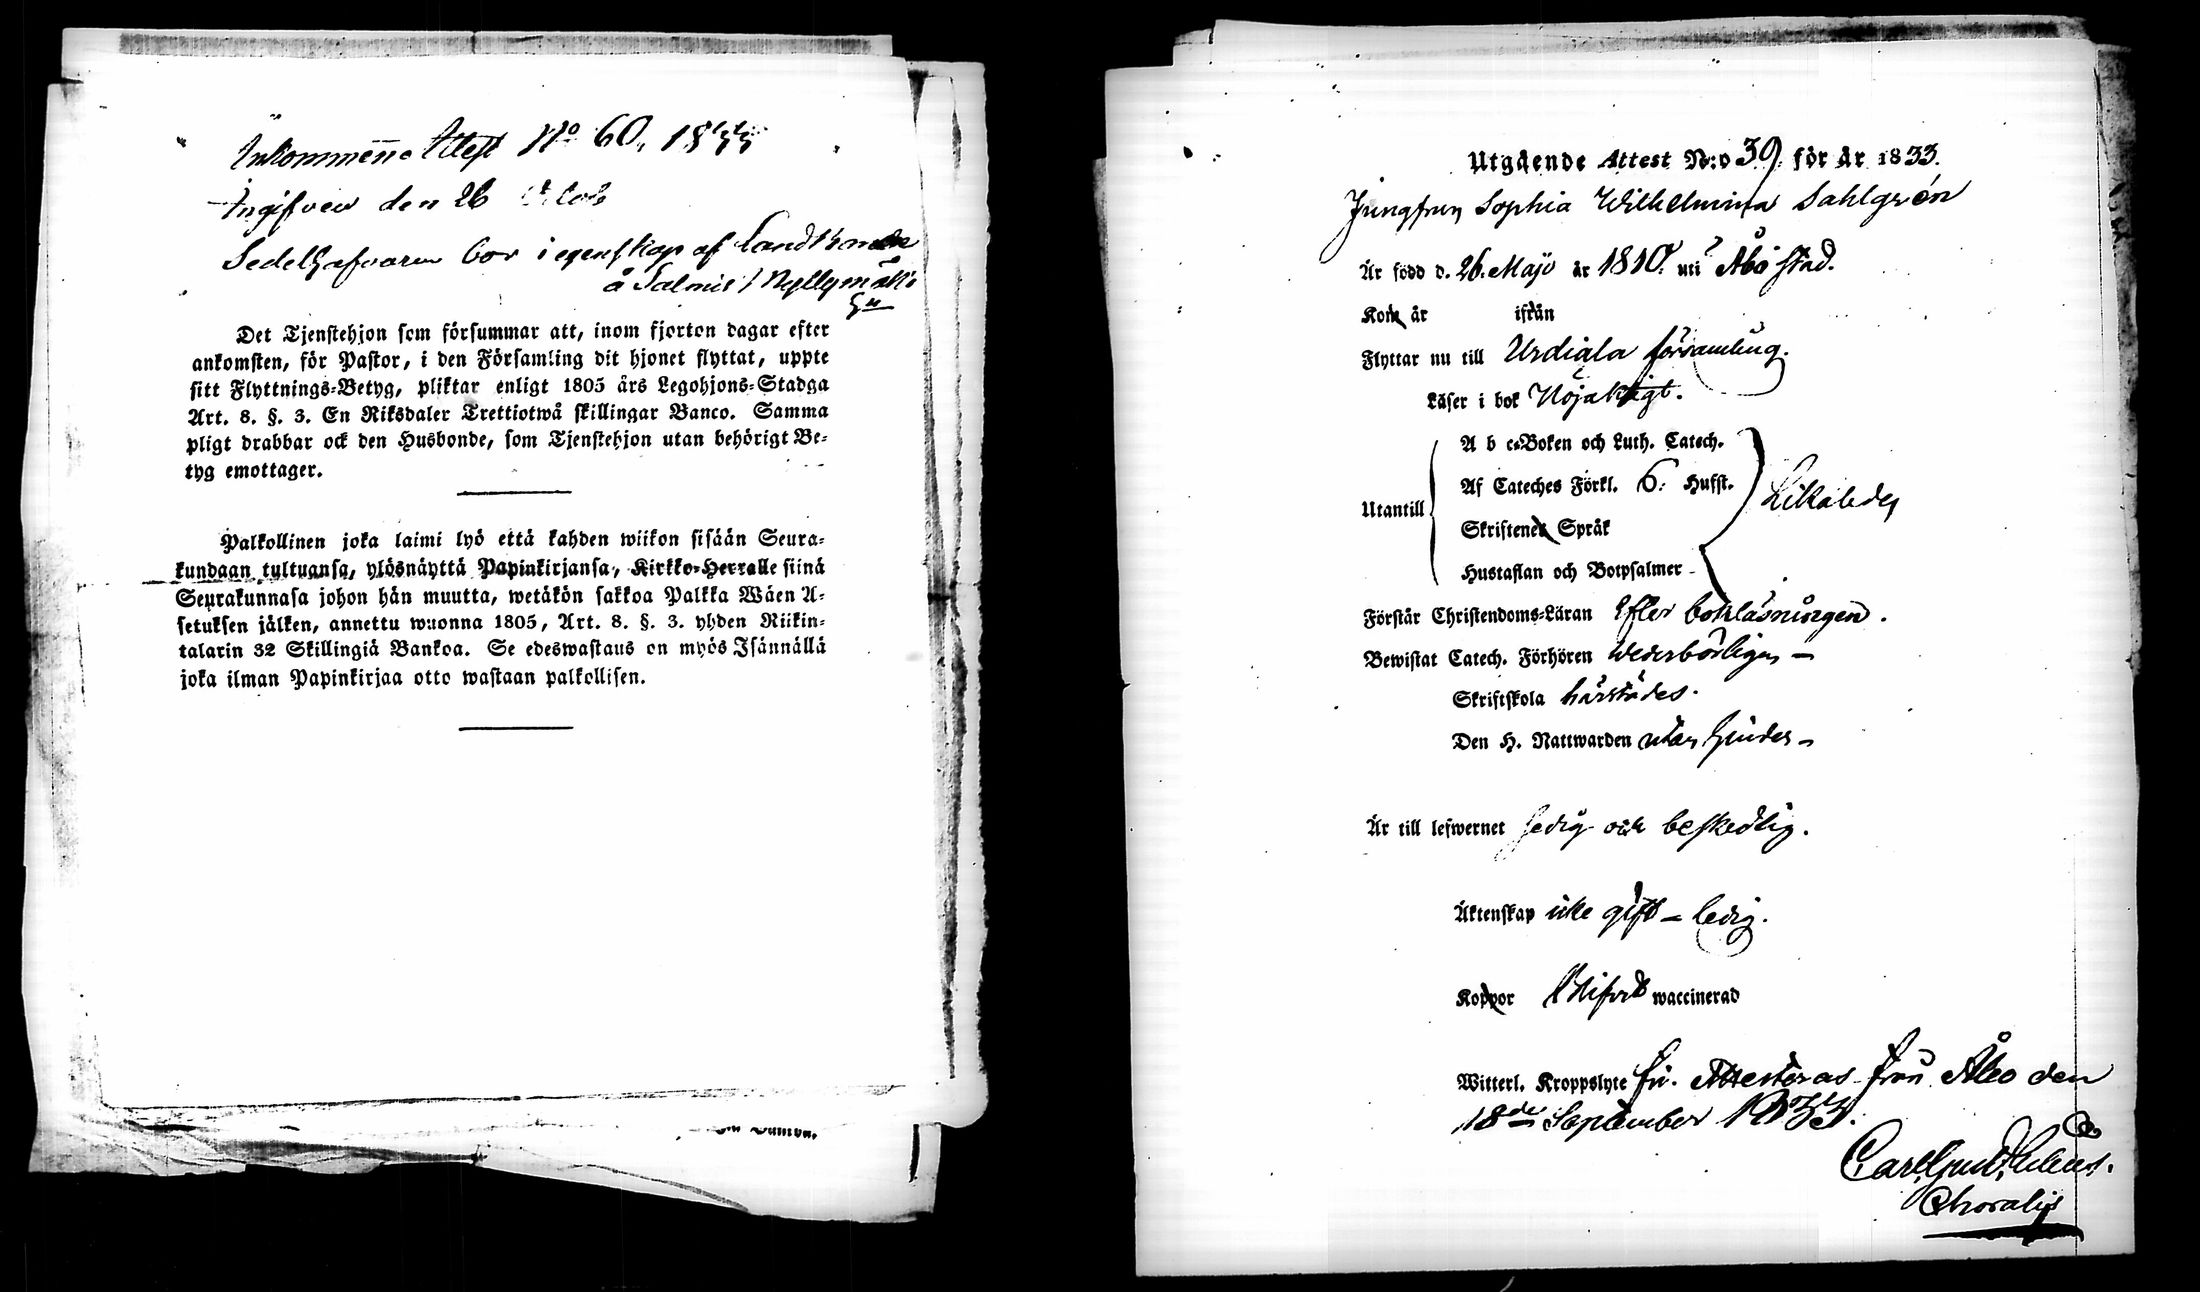 Inkommen Attest No 60. 1833
Ingifven den 26 Octob
Sedelhafvaren bor i egenskap af
å
Det Tjenstehjon som försummar att, inom fjorton dagar efter
ankomsten, för Pastor, i den Församling dit hjonet flyttat, uppte
sitt Flyttnings-Betyg, pliktar enligt 1805 års Legohjons-Stadga
Art. 8. §. 3. En Riksdaler Trettiotwå skillingar Banco. Samma
pligt drabbar ock den Husbonde, som Tjenstehjon utan behörigt Be-
tyg emottager.
Palkollinen joka laimi lyö että kahden wiikon sisään Seura-
kundaan tultuansa, ylösnäyttä Papinkirjansa, Kirkko-Herralle siinä
Seurakunnasa johon hän muutta, wetäkön sakkoa Palkka Wäen A-
setuksen jälken, annettu wuonna 1805, Art. 8. §. 3. yhden Riikin-
talarin 32 Skillingiä Bankoa. Se edeswastaus on myös Isännällä
joka ilman Papinkirjaa otto wastaan palkollisen.
Utgående Attest N:o 39 för år 1833.
Jungfrun Sophia Wilhelmina Sahlgrén
Är född d. 26. Majo år 1810. uti Åbo stad.
Kom år ifrån
Flyttar nu till Urdiala församling.
Läser i bok Nöjaktigt.
A b c-Boken och Luth. Catech.
Af Cateches Förkl. 6. Hufst.
Utantill
Likaledes
Skriftenes Språk
Hustaflan och Botpsalmer
Förstår Christendoms-Läran efter bokläsningen.
Bewistat Catech. Förhören wederbörligen
Skriftskola härstädes.
Den H. Nattwarden utan hinder
Är till lefwernet sedig och beskedlig.
Äktenskap icke gift - ledig.
Koppor waccinerad
Witterl. Kroppslyte fri. Attesteras från Åbo den
18de September 1833.
Carl Gust.
Choralis